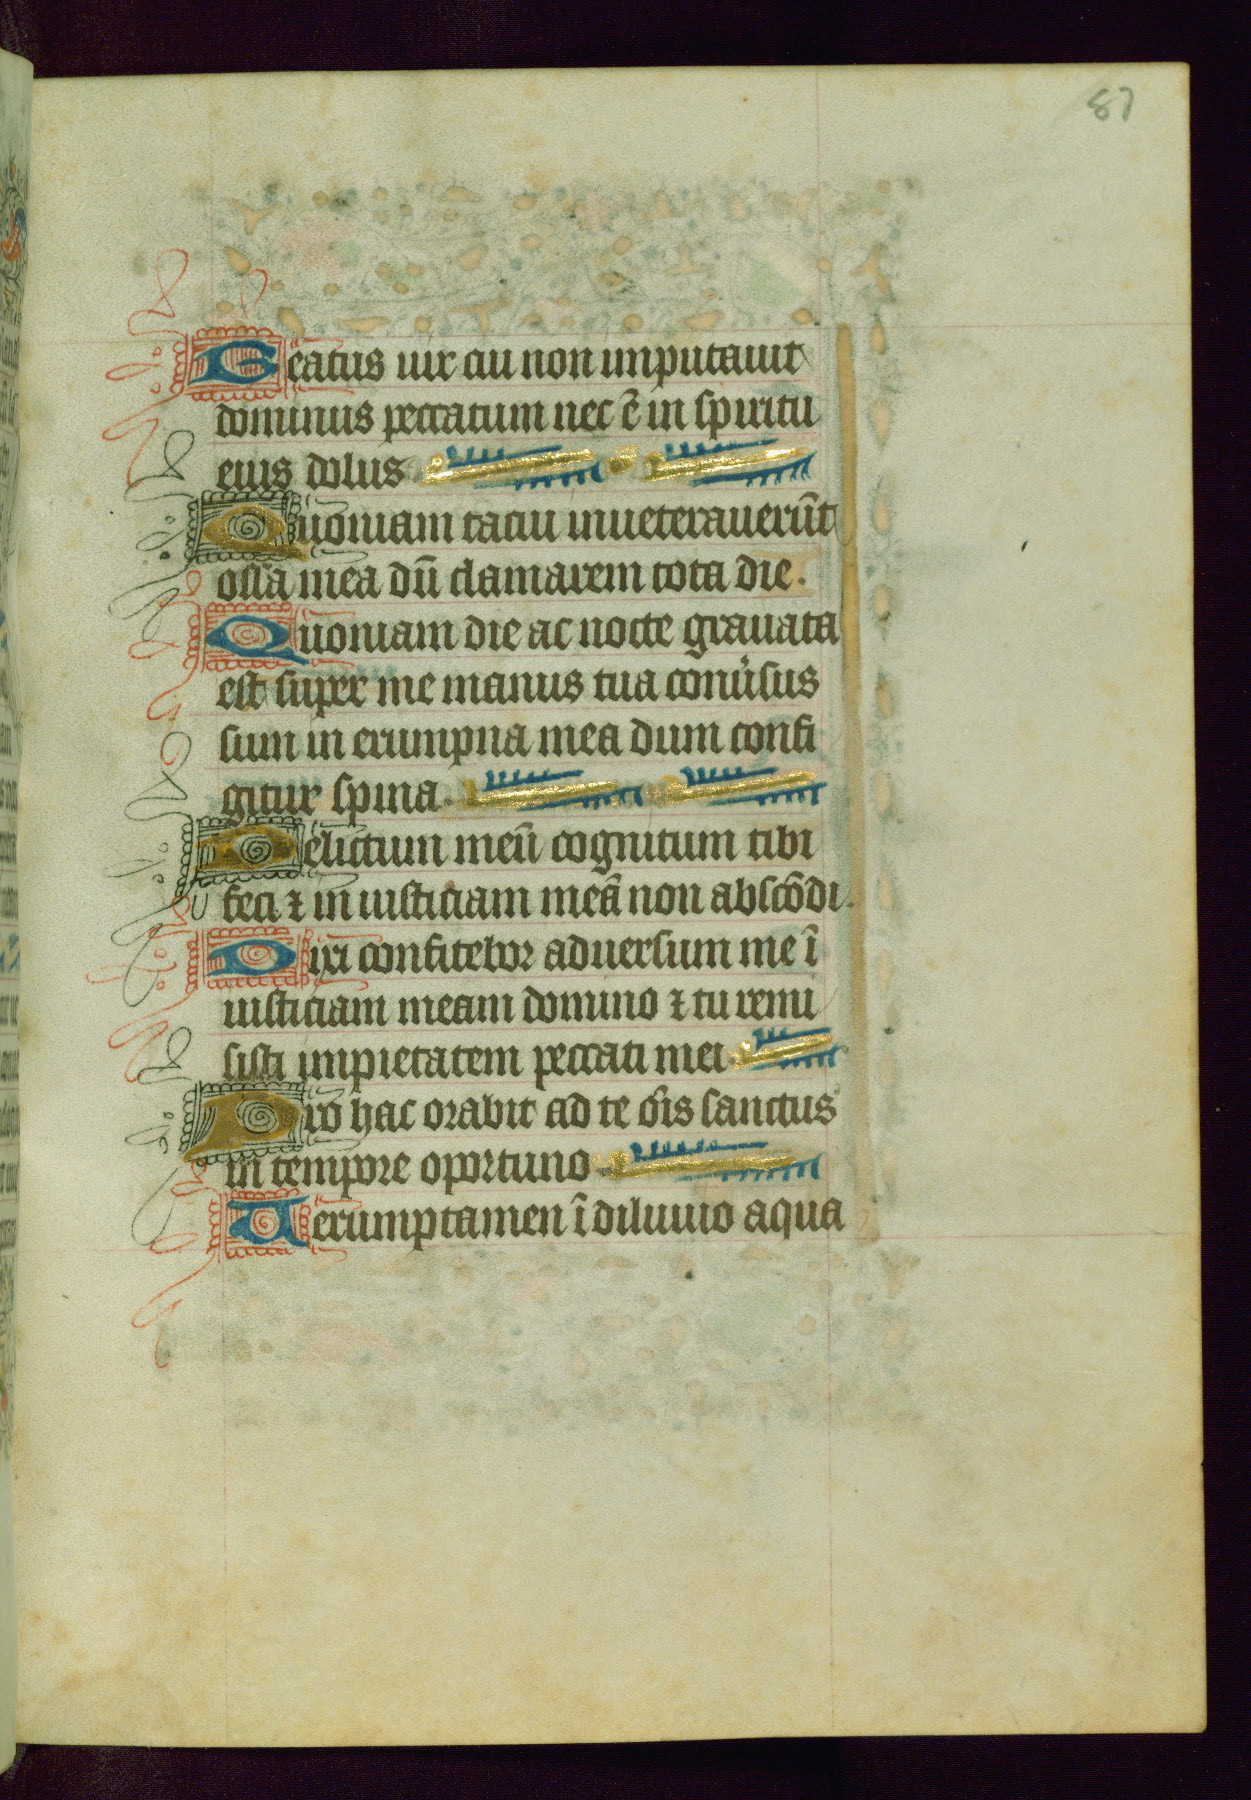 87
Beatus uir cui non imputauit
dominus peccatum nec ē in spiritu
eius dolus
Quoniam tacui inueterauerūt
ossa mea dū clamarem tota die.
Quoniam die ac nocte grauata
est super me manus tua conu̓sus
sum in erumpna mea dum confi
gitur spina.
Delictum meū cognitum tibi
feci ⁊ in iusticiam meā non abscōdi.
Dixi confitebor aduersum me ī
iusticiam meam domino ⁊ tu remi
sisti impietatem peccati mei.
Pro hac orabit ad te ōis sanctus
in tempore oportuno
Uerumptamen ī diluuio aqua